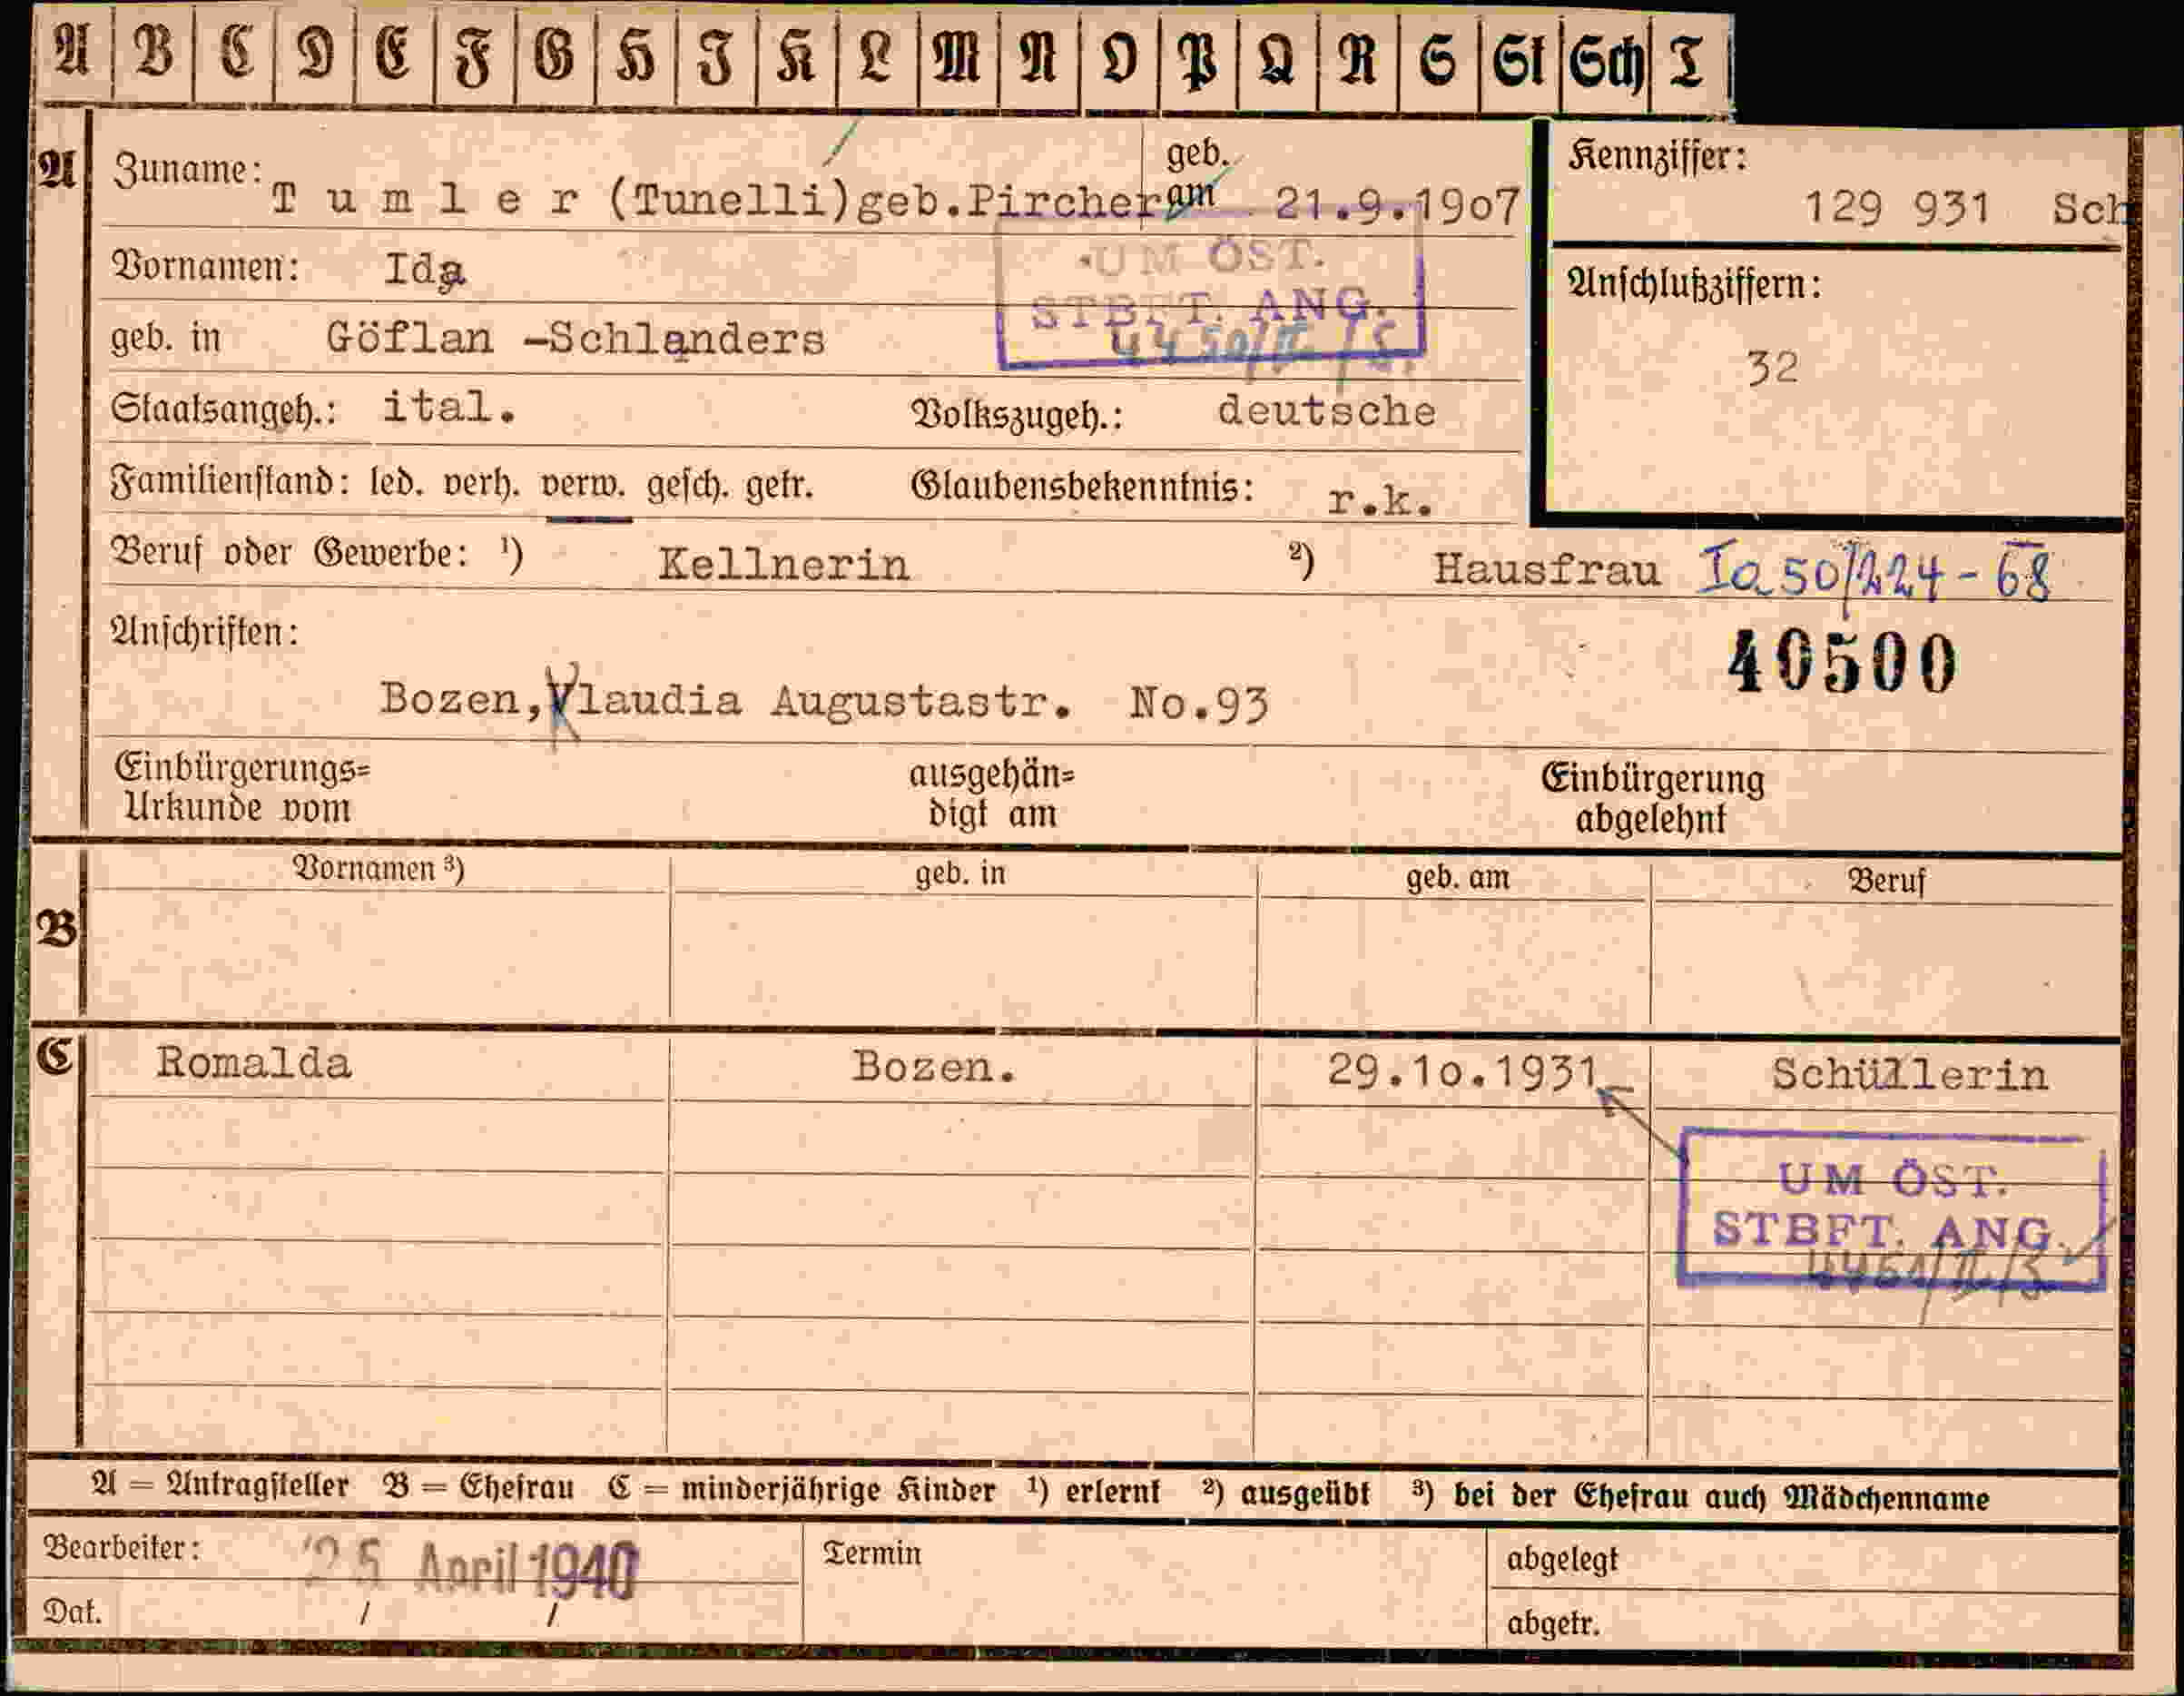 A B C D E F G H I K L M N O P Q R S St Sch T
A
Zuname: T u m l e r (Tunelli)geb.Pircher geb. am 21.9.1907
Kennziffer:
129 931 Sch
Vornamen: Ida
UM ÖST.
STBFT. ANG.
Anschlußziffern:
32
geb. in Göflan -Schlanders
Staatsangeh.: ital. Volkszugeh.: deutsche
Familienstand: led. verh. verw. gesch. getr. Glaubensbekenntnis: r.k.
Beruf oder Gewerbe: ¹) Kellnerin ²) Hausfrau Ia 50/224-68
Anschriften:
40500
Bozen, Klaudia Augustastr. No.93
Einbürgerungs= Urkunde vom
ausgehän= digt am
Einbürgerung abgelehnt
B
Vornamen ³) geb. in geb. am Beruf
C
Romalda Bozen. 29.10.1931 Schüllerin
UM ÖST.
STBFT. ANG.
A = Antragsteller B = Ehefrau C = minderjährige Kinder ¹) erlernt ²) ausgeübt ³) bei der Ehefrau auch Mädchenname
Bearbeiter: 25 April 1940
Termin
abgelegt
Dat. / /
abgetr.